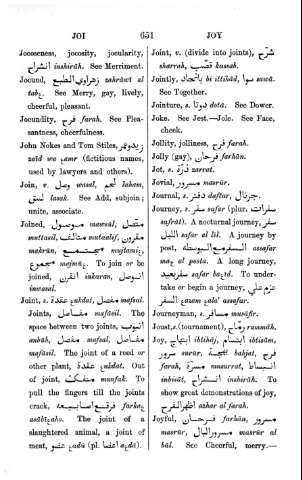 JOI 651 JOY
Jocoseness, jocosity, jocularity,
انشراح inshiráh. See Merriment.
Jocund, زهراوي الطبع
See Merry, gay, lively,
cheerful, pleasant.
Jocundity, فرح farah. See Plea-
santness, cheerfulness.
John Nokes and Tom Stiles, زيد وعمر
(fictitious names,
used by lawyers and others).
Join, v. وصل wasal, لحم lahem,
لصق lasak. See Add, subjoin;
unite, associate.
Joined, موصول mawsúl, متصل
muttasil, متألف mutaallif, مقرون
makrún,
مجموع majmúʿ. To join or be
joined, اقترن اتصل
inwasal.
Joint, s. عقدة مفصل mafsal.
Joints, مفاصل mafásil. The
space between two joints, انبوب
anbúb, مفصل mafsal, مفاصل
mafásil. The joint of a reed or
other plant, عقدة Out
of joint, منفكك munfak. To
pull the fingers till the joints
crack, فرقع اصابيعه
The joint of a
slaughtered animal, a joint of
meat, عضو (pl. اعضا).
Joint, v. (divide into joints), شرح
sharrah, قصب kassab.
Jointly, باتحاد bi ittihád, سوا sawá.
See Together.
Jointure, s. دوتا dotá. See Dower.
Joke. See Jest.—Jole. See Face,
cheek.
Jollity, jolliness, فرح farah.
Jolly (gay), فرحان farhán.
Jot, s. ذرة
Jovial, مسرور masrúr.
Journal, s. دفتر daftar, جرنال.
Journey, s. سفر safar (plur. سفرات
safrát). A nocturnal journey, سفر
الليل safar al lil. A journey by
post, السفر مع البوسطة assafar
maʿ al posta. A long journey,
سفر بعيد safar To under-
take or begin a journey, عزم على
السفر assafar.
Journeyman, s. مسافر musáfir.
Joust, s. (tournament), رماح rammáh.
Joy, ابتهاج ibtiháj, ابتسام ibtisám,
سرور surúr, بهجة bahjat, فرح
farah, مسرة masarrat, انبساط
inbisát, انشراح inshiráh. To
show great demonstrations of joy,
اظهر الفرح azhar al farah.
Joyful, فرحان farhán, مسرور
masrúr, مسرور البال masrúr al
bál. See Cheerful, merry.—